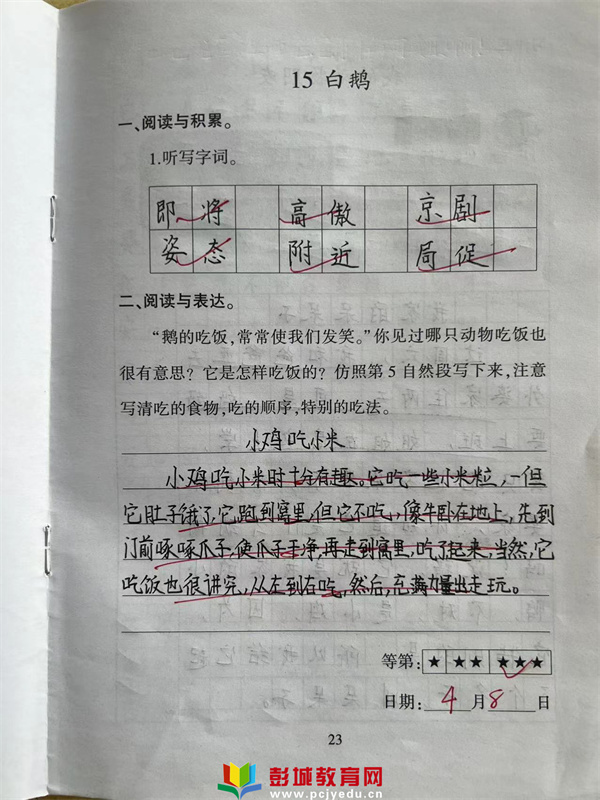 15 白鹅
一、阅读与积累。
1.听写字词。
即将 高傲 京剧
姿态 附近 局促
二、阅读与表达。
“鹅的吃饭,常常使我们发笑。”你见过哪只动物吃饭也
很有意思？它是怎样吃饭的？仿照第5自然段写下来,注意
写清吃的食物,吃的顺序,特别的吃法。
小鸡吃小米
小鸡吃小米时十分有趣。它吃一些小米粒,一但
它肚子饿了,它跑到窝里,但它不吃,像牛卧在地上,先到
门前啄啄爪子,使爪子干净,再走到窝里,吃了起来,当然,它
吃饭也很讲究,从左到右吃,然后,充满力量出走玩。
等第: ★ ★★ ★★★
日期: 4 月 8 日
23
彭城教育网
www.pcjyedu.cn